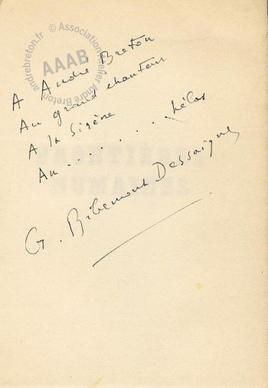 © Association Atelier André Breton
andrebreton.fr
AAAB
A André Breton
Au grand chanteur
A la Sirène
Au ........ hélas
FRONTIÈRES
HUMAINES
G. Ribemont Dessaignes